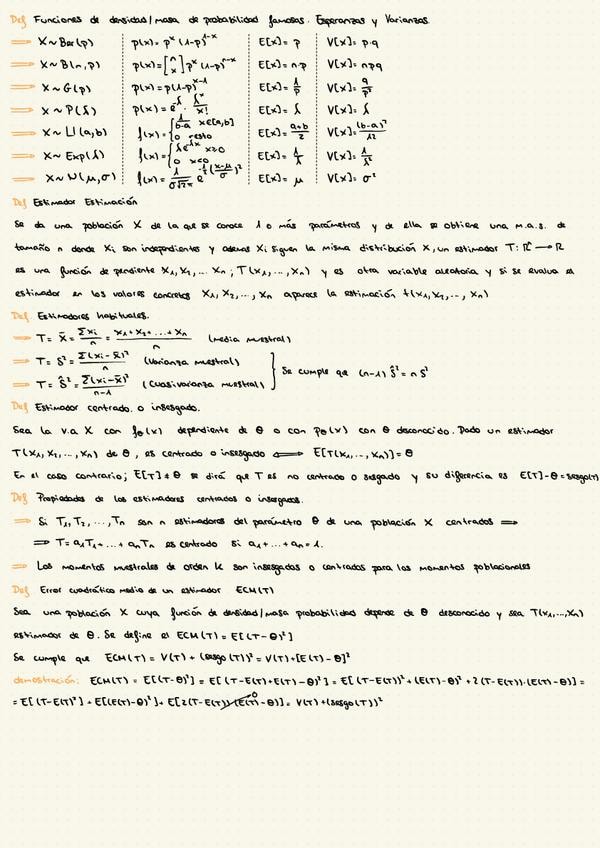 Def Funciones de densidad/masa de probabilidad famosas. Esperanzas y Varianzas.
⇒ X~Ber(p) p(x)= p^x (1-p)^{1-x} E[x]= p V[x]= p·q
⇒ X~B(n,p) p(x)= [n x] p^x (1-p)^{n-x} E[x]= n·p V[x]= npq
⇒ X~G(p) p(x)= p(1-p)^{x-1} E[x]= 1/p V[x]= q/p²
⇒ X~P(λ) p(x)= e^{-λ} · λ^x/x! E[x]= λ V[x]= λ
⇒ X~U(a,b) f(x)= { 1/(b-a) x∈[a,b] 0 resto E[x]= (a+b)/2 V[x]= (b-a)²/12
⇒ X~Exp(λ) f(x)= { λe^{-λx} x≥0 0 x<0 E[x]= 1/λ V[x]= 1/λ²
⇒ X~N(μ,σ) f(x)= 1/(σ√2π) e^{-1/2((x-μ)/σ)²} E[x]= μ V[x]= σ²
Def Estimador Estimación
Se da una población X de la que se conoce 1 o más parámetros y de ella se obtiene una m.a.s. de
tamaño n donde Xi son independientes y ademas Xi siguen la misma distribución X, un estimador T: ℝⁿ → ℝ
es una función de pendiente X₁, X₂, ... Xn ; T(X₁, ..., Xn) y es otra variable aleatoria y si se evalua el
estimador en los valores concretos X₁, X₂, ..., Xn aparece la estimación t(x₁, x₂, .., xn)
Def. Estimadores habituales.
⇒ T= X̄ = Σxi/n = (x₁+x₂+...+xn)/n (media muestral)
⇒ T= S² = Σ(xi-x̄)²/n (Varianza muestral)
⇒ T= Ŝ² = Σ(xi-x̄)²/(n-1) (Cuasivarianza muestral) } Se cumple que (n-1) Ŝ² = n S²
Def Estimador centrado. o insesgado.
Sea la v.a X con fθ(x) dependiente de θ o con pθ(x) con θ desconocido. Dado un estimador
T(X₁, X₂, ..., Xn) de θ, es centrado o insesgado ⟺ E[T(X₁,...,Xn)] = θ
En el caso contrario; E[T] ≠ θ se dirá que T es no centrado o sesgado y su diferencia es E[T]-θ = sesgo(T)
Def Propiedades de los estimadores centrados o insesgados.
⇒ Si T₁, T₂, ..., Tn son n estimadores del parámetro θ de una población X centrados ⇒
⇒ T= a₁T₁+...+anTn es centrado si a₁+...+an=1.
⇒ Los momentos muestrales de orden k son insesgados o centrados para los momentos poblacionales
Def Error cuadrático medio de un estimador ECM(T)
Sea una población X cuya función de densidad/masa probabilidad depende de θ desconocido y sea T(X₁,...,Xn)
estimador de θ. Se define el ECM(T) = E[(T-θ)²]
Se cumple que ECM(T) = V(T) + (sesgo(T))² = V(T)+[E(T)-θ]²
demostración: ECM(T) = E[(T-θ)²] = E[(T-E(T)+E(T)-θ)²] = E[(T-E(T))² + (E(T)-θ)² + 2(T-E(T))·(E(T)-θ)] =
= E[(T-E(T))²] + E[(E(T)-θ)²] + E[2(T-E(T))·(E(T)-θ)] 0 = V(T) + (sesgo(T))²